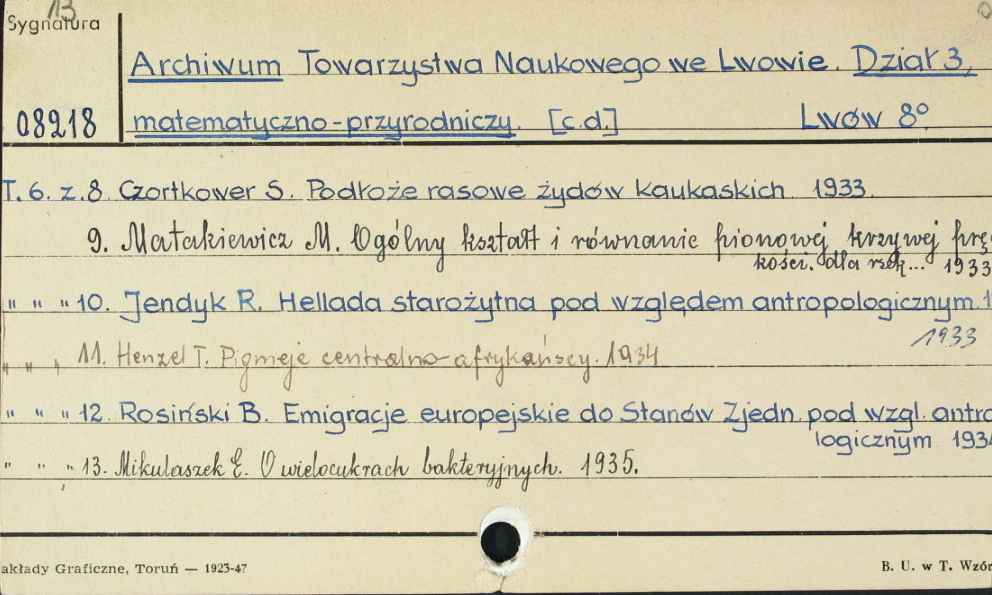 13
Sygnatura
Archiwum Towarzystwa Naukowego we Lwowie. Dział 3,
08218 matematyczno-przyrodniczy. [c.d.] Lwów 8°
T. 6. z. 8. Czortkower S. Podłoże rasowe żydów kaukaskich 1933.
9. Matakiewicz M. Ogólny kształt i równanie pionowej krzywej prę
kości. dla rzek... 1933
" " " 10. Jendyk R. Hellada starożytna pod względem antropologicznym. 1
1933
" " " 11. Henzel T. Pigmeje centralno-afrykańscy. 1934
" " " 12. Rosiński B. Emigracje europejskie do Stanów Zjedn. pod wzgl. antro
logicznym 193
" " " 13. Mikulaszek E. O wielocukrach bakteryjnych. 1935.
akłady Graficzne, Toruń — 1923-47 B. U. w T. Wzór